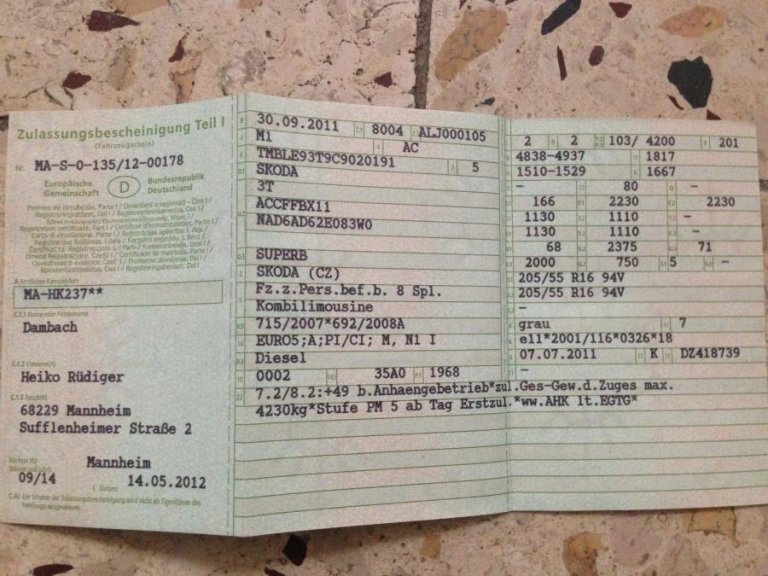 Zulassungsbescheinigung Teil I
(Fahrzeugschein)
Nr. MA-S-O-135/12-00178
Europäische Gemeinschaft
D
Bundesrepublik Deutschland
MA-HK237**
C.1.1 Name oder Firmenname
Dambach
C.1.2 Vorname(n)
Heiko Rüdiger
C.1.3 Anschrift
68229 Mannheim
Sufflenheimer Straße 2
Mannheim
09/14
Datum: 14.05.2012
30.09.2011 8004 ALJ000105
M1 AC
TMBLE93T9C9020191 5
SKODA
3T
ACCFFBX11
NAD6AD62E083W0
SUPERB
SKODA (CZ)
Fz.z.Pers.bef.b. 8 Spl.
Kombilimousine
715/2007*692/2008A
EURO5;A;PI/CI; M, N1 I
Diesel
0002 35A0 1968
7.2/8.2:+49 b.Anhaengebetrieb*zul.Ges-Gew.d.Zuges max.
4230kg*Stufe PM 5 ab Tag Erstzul.*ww.AHK lt.EGTG*
2 2 103/ 4200 201
4838-4937 1817
1510-1529 1667
- 80 -
166 2230 2230
1130 1110 -
1130 1110 -
68 2375 71
2000 750 5 -
205/55 R16 94V
205/55 R16 94V
-
grau 7
e11*2001/116*0326*18
07.07.2011 K DZ418739
-